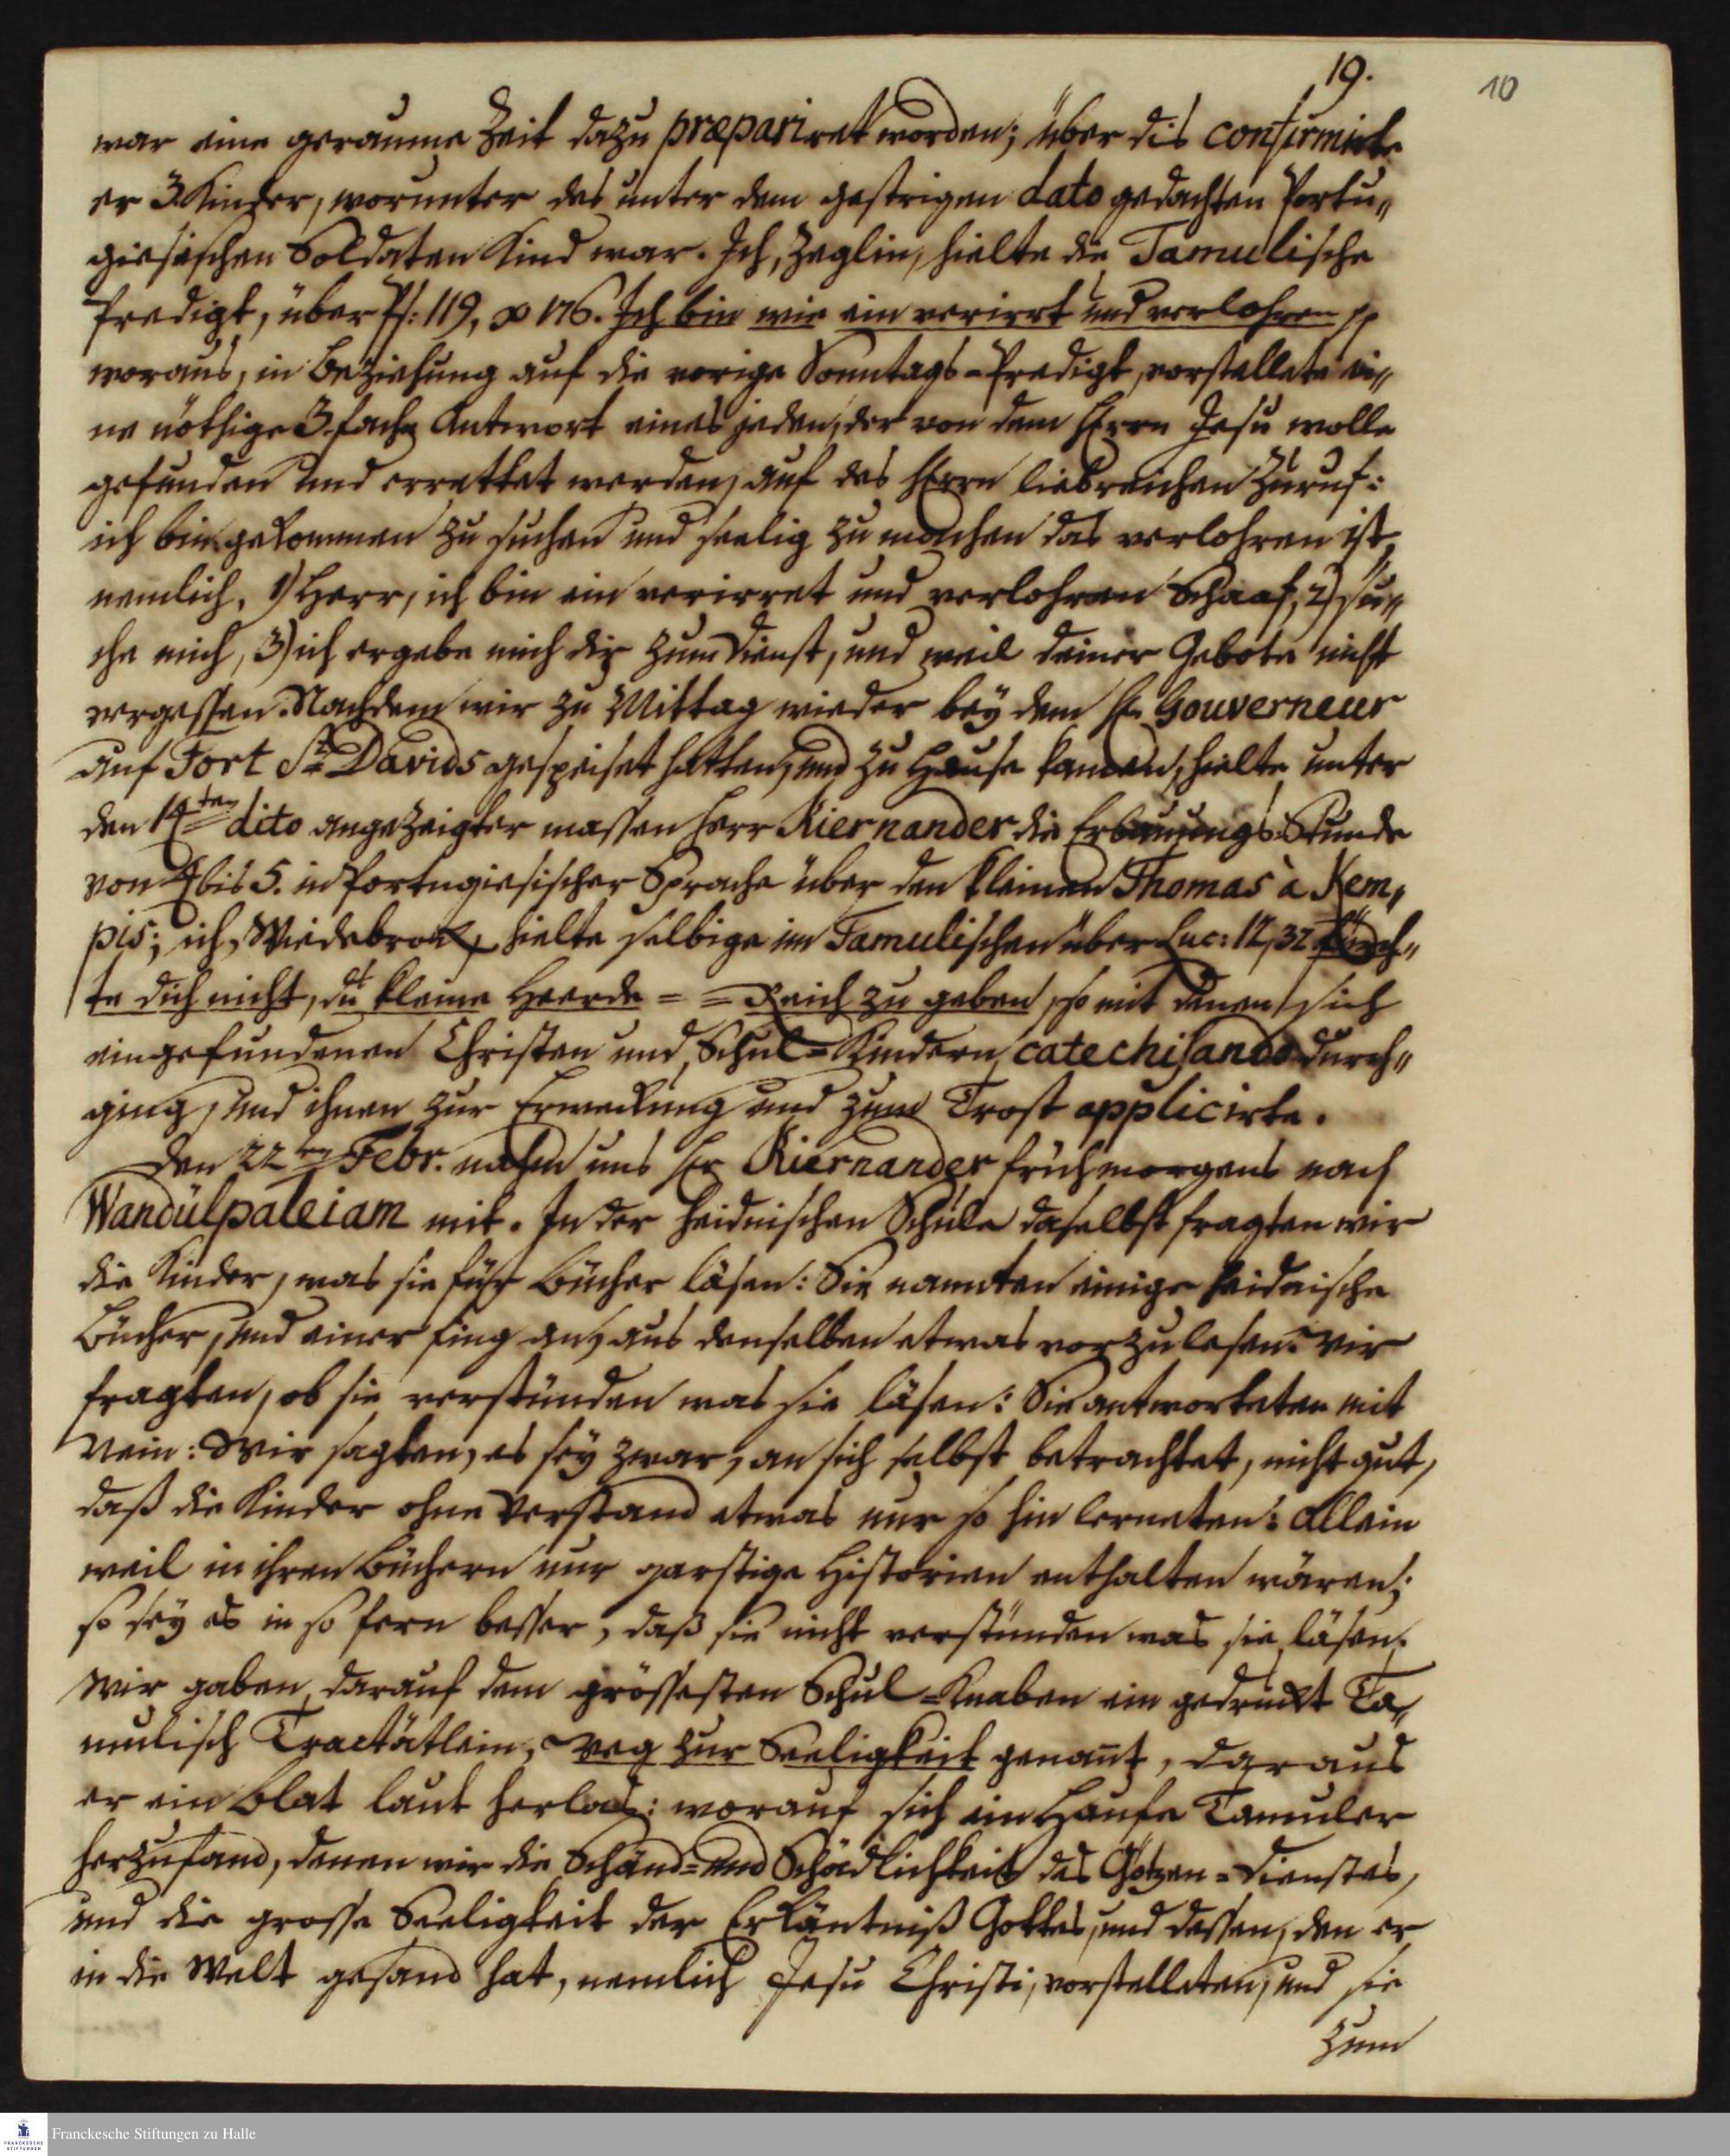 19.
10
war eine geraume Zeit dazu præpariret worden; über dis confirmirte
er 3. Kinder, worunter des unter dem gestrigen dato gedachten Portu„
giesischen Soldaten Kind war. Ich, Zeglin, hielte die Tamulische
Predigt, über Ps: 119, v 176. Ich bin wie ein verirrt und verlohren pp
woraus, in Beziehung auf die vorige Sonntags-Predigt, vorstellete ei„
ne nöthige 3.fache Antwort eines jeden, der von dem HErrn Jesu wolle
gefunden und errettet werden, auf des HErrn liebreichen Zuruf:
ich bin gekommen zu suchen und seelig zu machen das verlohren ist,
nemlich, 1) Herr, ich bin ein verirret und verlohren Schaaf, 2) su„
che mich, 3) ich ergebe mich dir zum Dienst, und weil deiner Gebote nicht
vergessen. Nachdem wir zu Mittag wieder bey dem H. Gouverneur
auf Fort St. Davids gespeiset hatten, und zu Hause kamen, hielte unter
den 14ten dito angezeigter massen Herr Kiernander die Erbauungs-Stunde
von 4 bis 5. in Portugiesischer Sprache über den kleinen Thomas à Kem„
pis; ich, Wiedebrock, hielte selbige im Tamulischen über Luc: 12, 32 Fürch„
te dich nicht, du kleine Heerde = = Reich zu geben, so mit denen sich
eingefundenen Christen und Schul-Kindern catechisando durch„
ging, und ihnen zur Erweckung und zum Trost applicirte.
Den 22ten Febr. nahm uns Hr Kiernander früh morgens nach
Wandülpaleiam mit. In der heidnischen Schule daselbst fragten wir
die Kinder, was sie für Bücher läsen: Sie nannten einige heidnische
Bücher, und einer fing an, aus denselben etwas vorzulesen. Wir
fragten, ob sie verstünden was sie läsen: Sie antworteten mit
Nein: Wir sagten, es sey zwar, an sich selbst betrachtet, nicht gut,
daß die Kinder ohne Verstand etwas nur so hin lerneten: Allein
weil in ihren Büchern nur garstige Historien enthalten wären;
so sey es in so fern besser, daß sie nicht verstünden was sie läsen.
Wir gaben darauf dem grössesten Schul-Knaben ein gedruckt Ta„
mulisch Tractätlein, Weg zur Seeligkeit genañt, daraus
er ein Blat laut herlas: worauf sich ein Haufe Tamuler
herzufand, denen wir die Schänd- und Schädlichkeit des Götzen-Dienstes,
und die grosse Seeligkeit der Erkäntniß Gottes, und dessen, den er
in die Welt gesand hat, nemlich Jesu Christi, vorstelleten, und sie
zum
Franckesche Stiftungen zu Halle